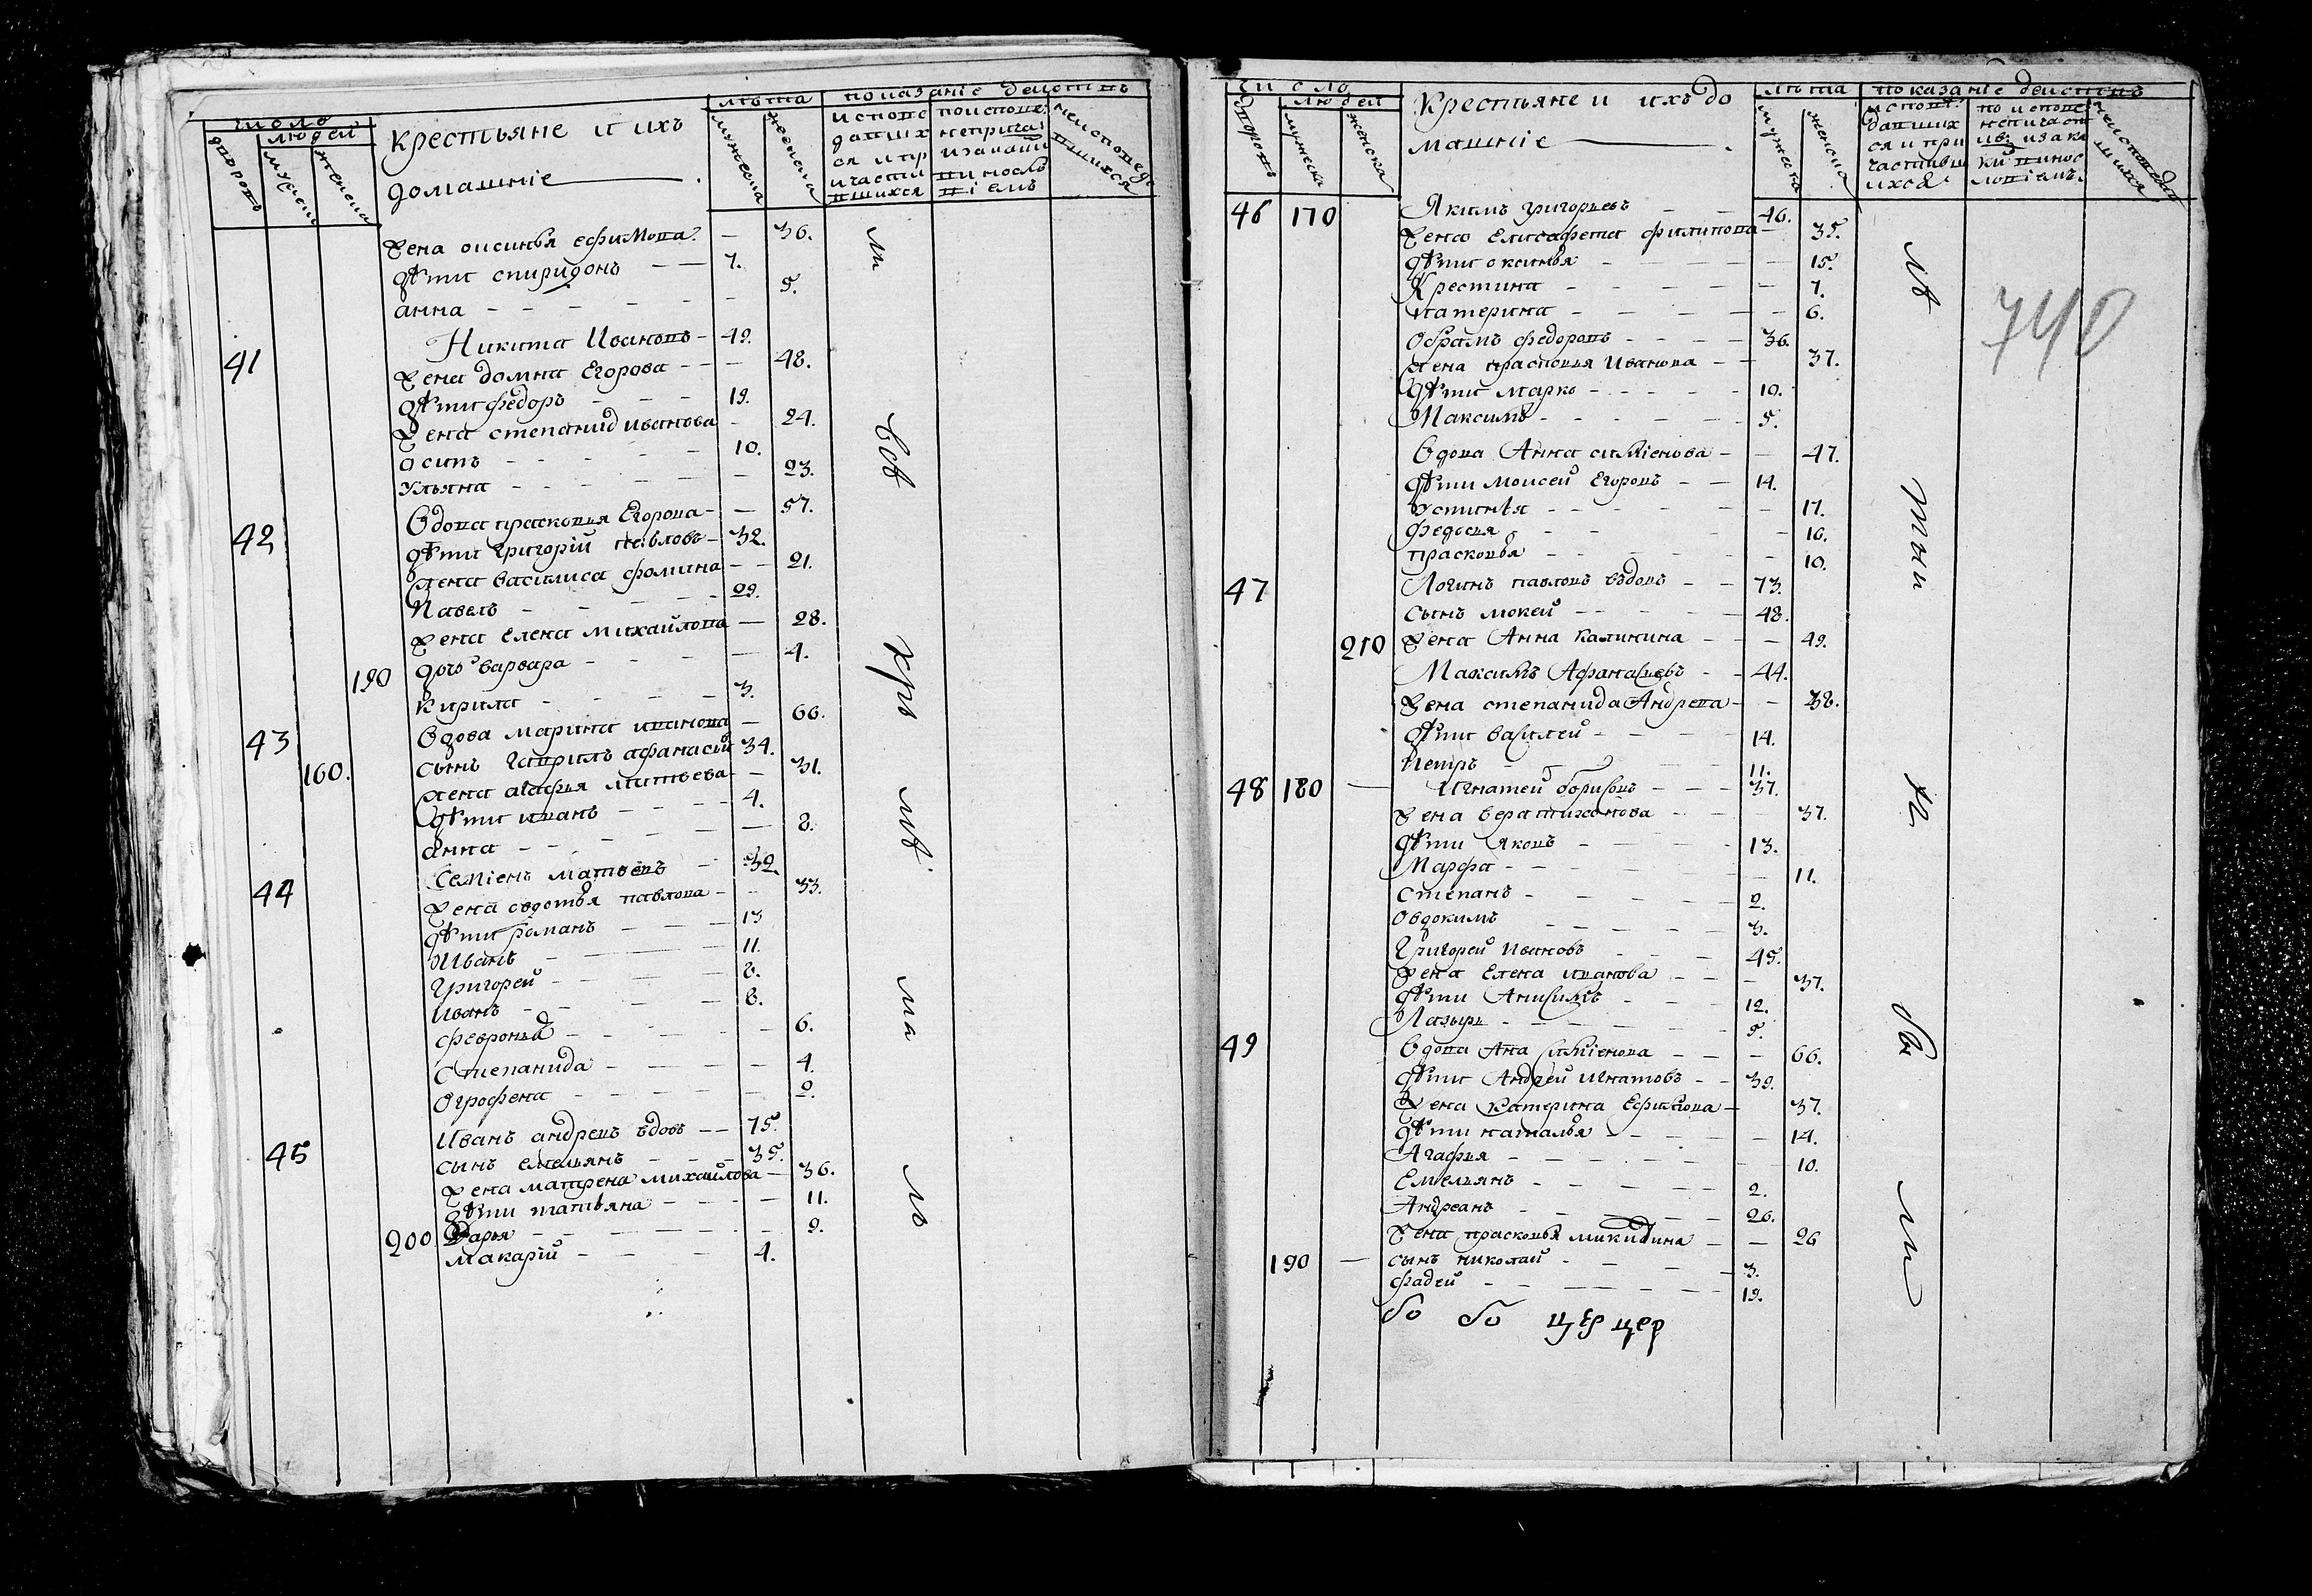 число
людей
дворовъ
мужеска
женска
крестьяне и ихъ
домашніе
лѣта
мужеска
женска
показаніе деиствъ
жена оксинья ефимова — 36.
дѣти спиридонъ — 7.
анна — 5.
41 Никита Ивановъ — 49.
жена домна Егорова — 48.
дѣти федоръ — 19.
жена степанида иванова — 24.
осипъ — 10.
ульяна — 23.
42 Вдова прасковья Егорова — 57.
дѣти григорїй павловъ — 32.
жена василиса фомина — 21.
Павелъ — 29.
жена Елена михайлова — 28.
190 дочь варвара — 4.
кирила — 3.
43 Вдова марина иванова — 66.
160. сынъ гаврилъ афанасьи 34.
жена агафья матвеева — 31.
дѣти иванъ — 4.
анна — 8.
44 Семіенъ матвеевъ — 32.
жена овдотья павлова — 33.
дѣти романъ — 13
Иванъ — 11.
григорей — 8.
иванъ — 8.
февронья — 6.
Степанида — 4.
Огрофена — 2.
45 Иванъ андревъ вдовъ — 75.
сынъ емельянъ — 35.
жена матрена михайлова — 36.
дѣти татьяна — 11.
200 Дарья — 9.
макарїй — 4.
число
людей
дворовъ
мужеска
женска
Крестьяне и ихъ до
машніе
лѣта
мужеска
женска
показаніе деиствъ
740
46 170 Якимъ григорьевъ — 46.
жена Елисафета филипова — 35.
дѣти оксинья — 15.
Крестина — 7.
катерина — 6.
Обрамъ федоровъ — 36.
жена прасковья Иванова — 37.
дѣти Марко — 10.
Максимъ — 5.
Вдова Анна симіенова — 47.
дѣти моисей Егоровъ — 14.
устинья — 17.
федосья — 16.
прасковья — 10.
47 Логинъ павловъ вдовъ — 73.
сынъ мокей — 48.
210 жена Анна калинина — 49.
Максимъ Афанасьевъ — 44.
жена степанида Андрева — 38.
дѣти василей — 14.
Петръ — 11.
48 180 — Игнатей борисовъ — 37.
жена вера тиханова — 37.
дѣти Яковъ — 13.
Марфа — 11.
степанъ — 9.
Овдокимъ — 3.
григорей Ивановъ — 45.
жена Елена иванова — 37.
дѣти Анисимъ — 12.
Лазырь — 5.
49 Вдова Ана симіенова — 66.
дѣти Андрей игнатовъ — 39.
жена катерина Ефимова — 37.
дѣти наталья — 14.
Агафья — 10.
Емельянъ — 2.
Андреанъ — 26.
жена прасковья микитина — 26
190 — сынъ николай — 3.
фадей — 19.
бо бо цер цер